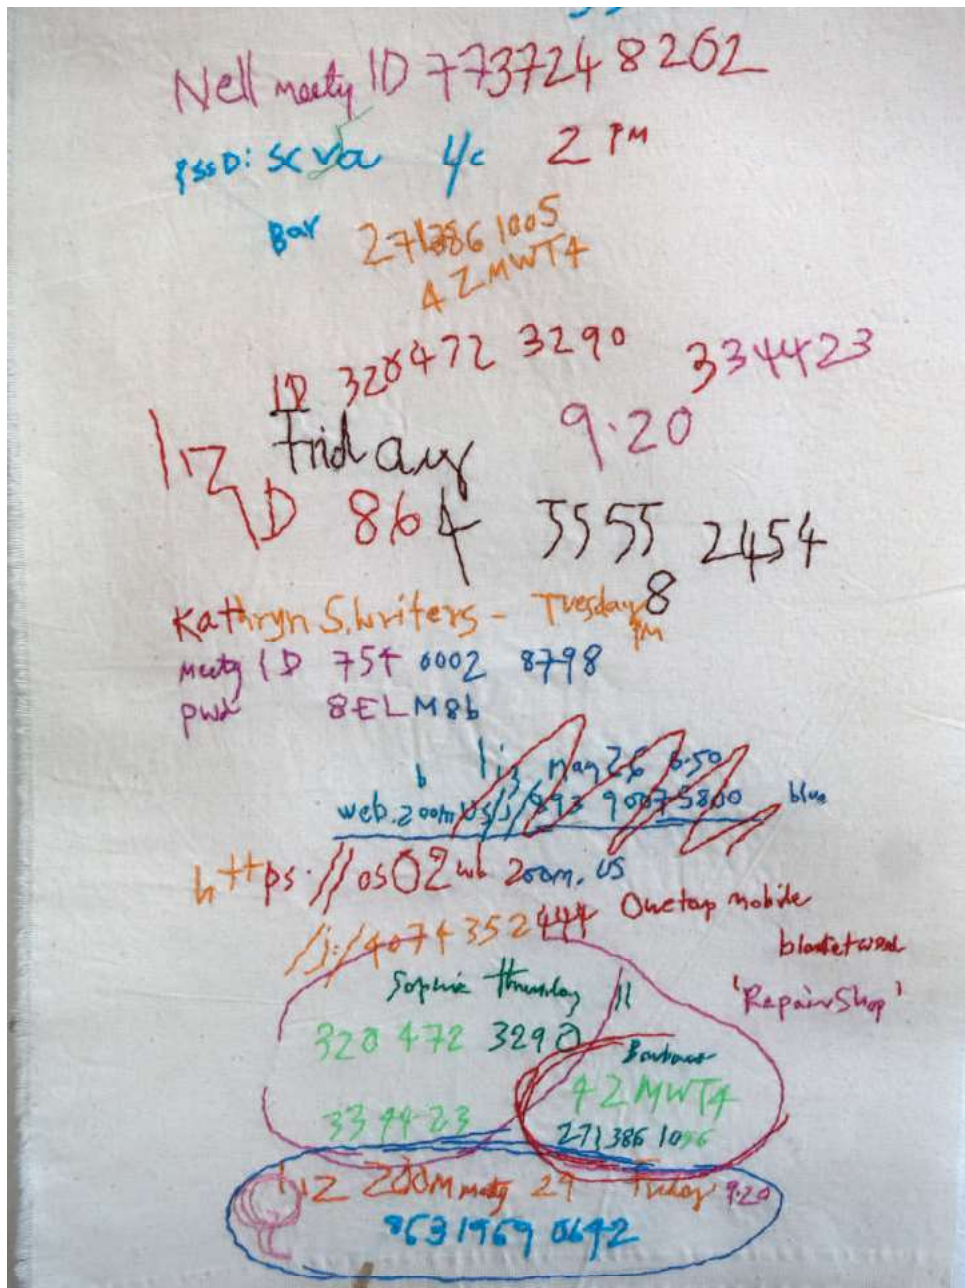 Nell meety ID 773724 8202
pssD: scva 4c 2 PM
Bar 271386 1005
42MWT4
ID 320472 3290 334423
Friday 9.20
liz
ID 864 5555 2454
Kathryn S. Writers - Tuesday 8
PM
meetg ID 754 0002 8798
pwd 8ELM8b
liz May 26 6.50
web.zoom.us/j/893 90075800 blue
https://os02wb zoom.us
/j:/4074352444 Onetap mobile
'RepairShop'
Sophie Thursday 11
320 472 3290
Barbara
42MWT4
334423
271386 1056
Liz Zoom meety 29 Friday 9.20
863 1969 0642